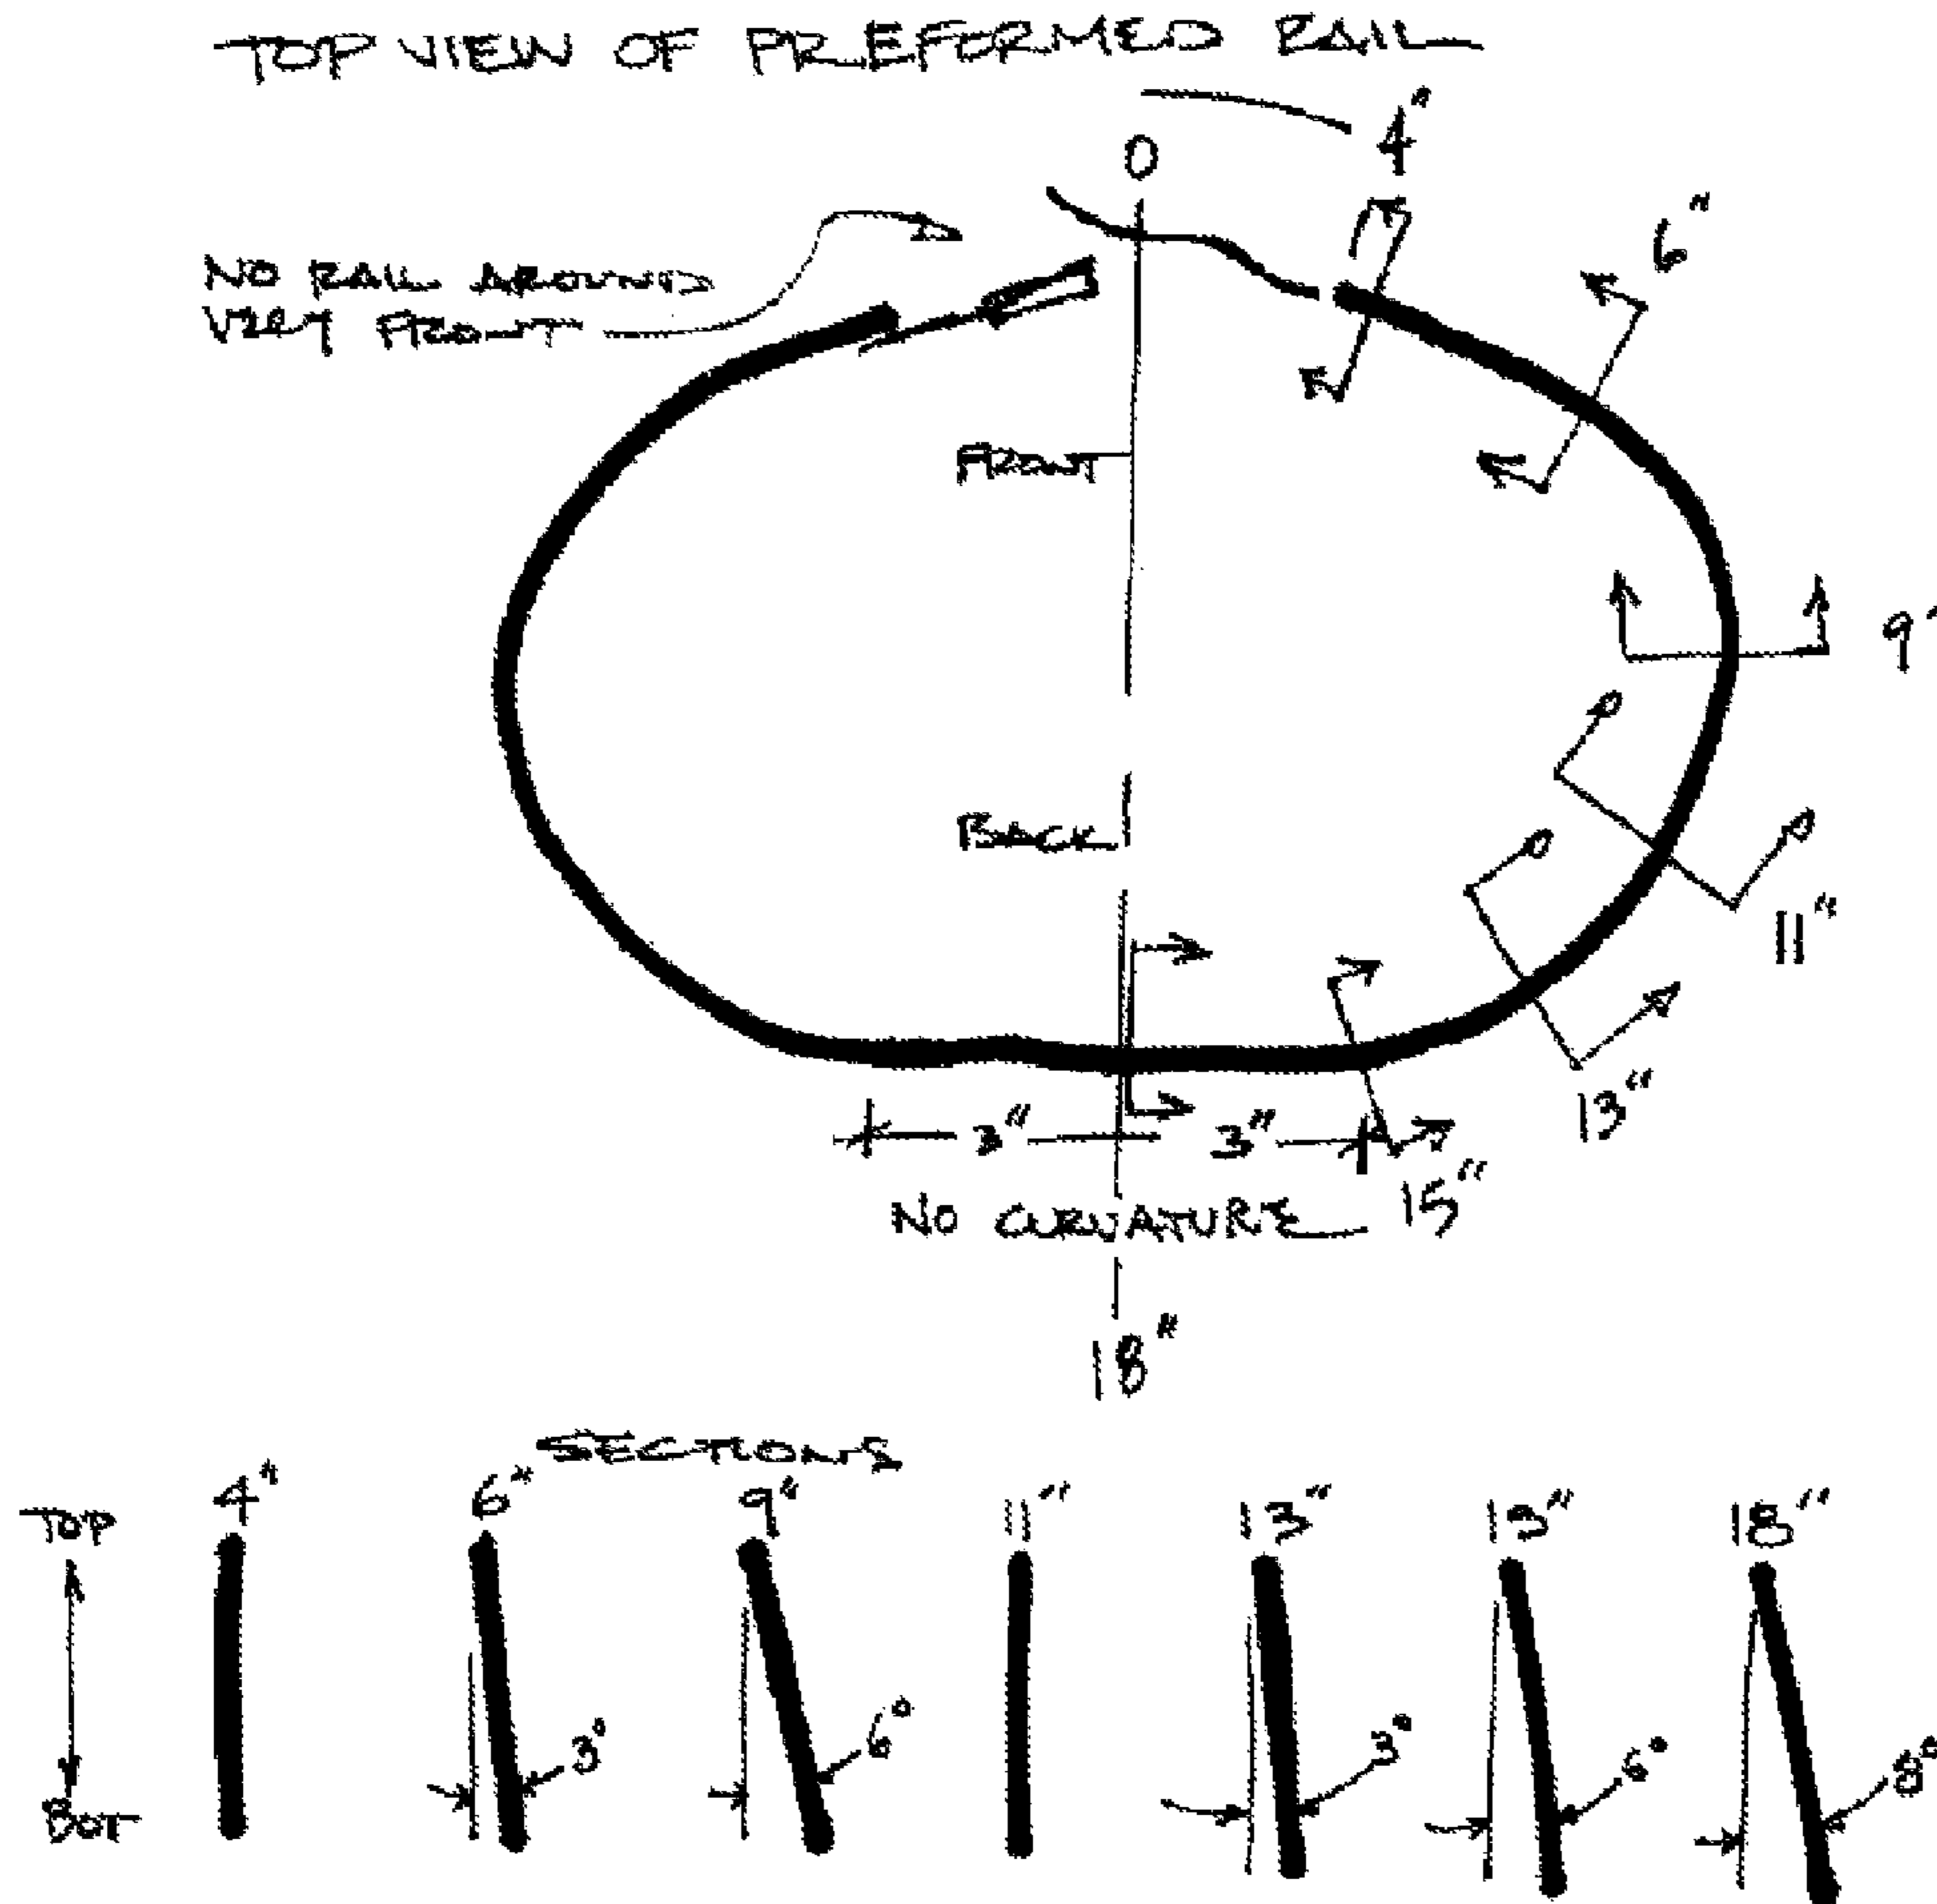 TOP VIEW OF PREFORMED RAIL
0
4"
6"
NO RAIL AROUND
VERY FRONT
FRONT
9"
BACK
11"
13"
3" 3"
15"
NO CURVATURE
18"
SECTIONS
TOP 4" 6" 9" 11" 13" 15" 18"
3° 6° 3° 6° 8°
BOT